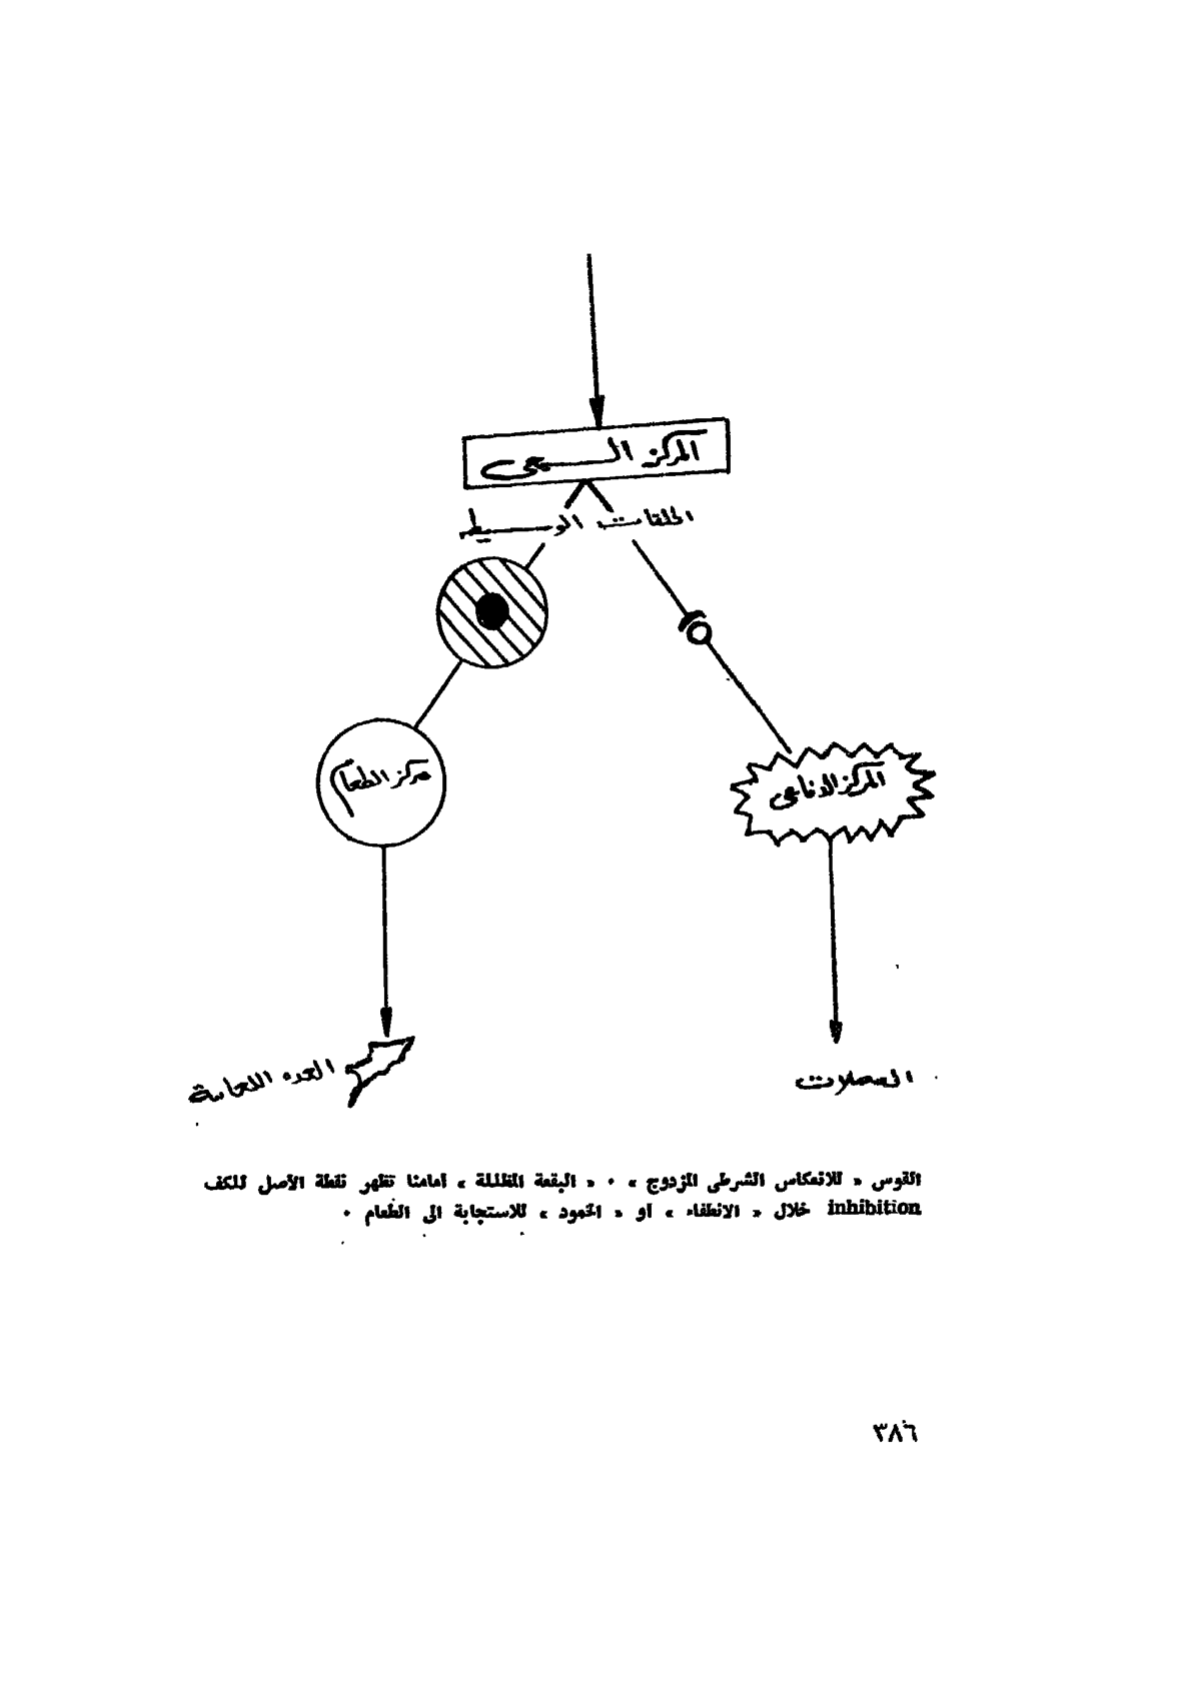 المركز السمعى
الحلقات الوسيطه
مركز الطعام
المركز الدفاعى
الغدد اللعابية
العضلات
القوس « للانعكاس الشرطى المزدوج » ٠ « البقعة المظللة » أمامنا تظهر نقطة الأصل للكف
inhibition خلال « الانطفاء » أو « الخمود » للاستجابة الى الطعام ٠
٣٨٦